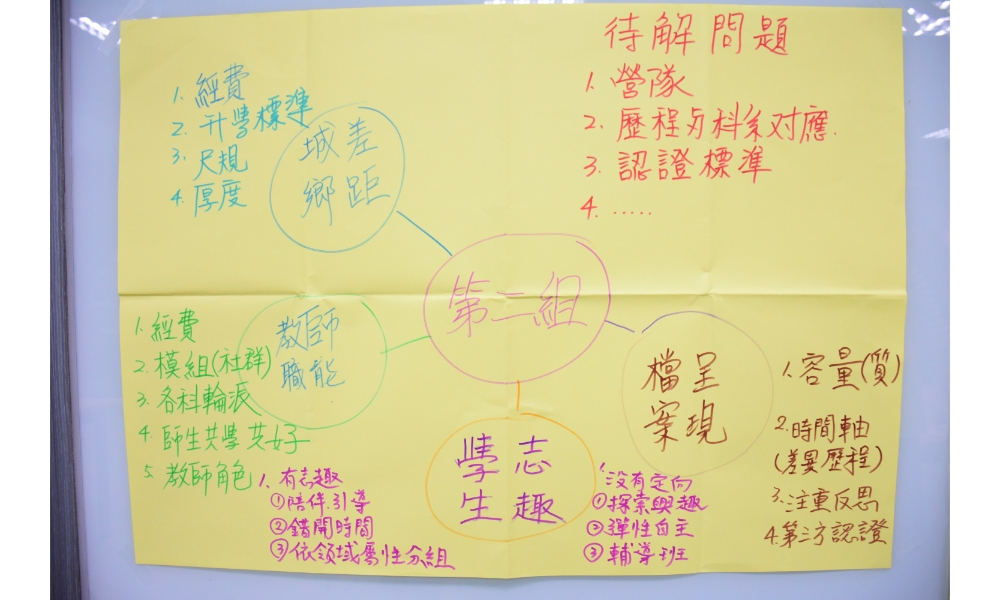 待解問題
1. 營隊
2. 歷程与科系対應.
3. 認證標準
4. .....
1. 經費
2. 升學標準
3. 尺規
4. 厚度
城差
鄉距
第二組
教師
職能
1. 經費
2. 模組(社群)
3. 各科輪派
4. 師生共學共好
5. 教師角色
檔呈
案現
1. 容量(質)
2. 時間軸
(差異歷程)
3. 注重反思
4. 第三方認證
學志
生趣
1. 有志趣
①陪伴.引導
②錯開時間
③依領域屬性分組
1. 沒有定向
①探索興趣
②彈性自主
③輔導班